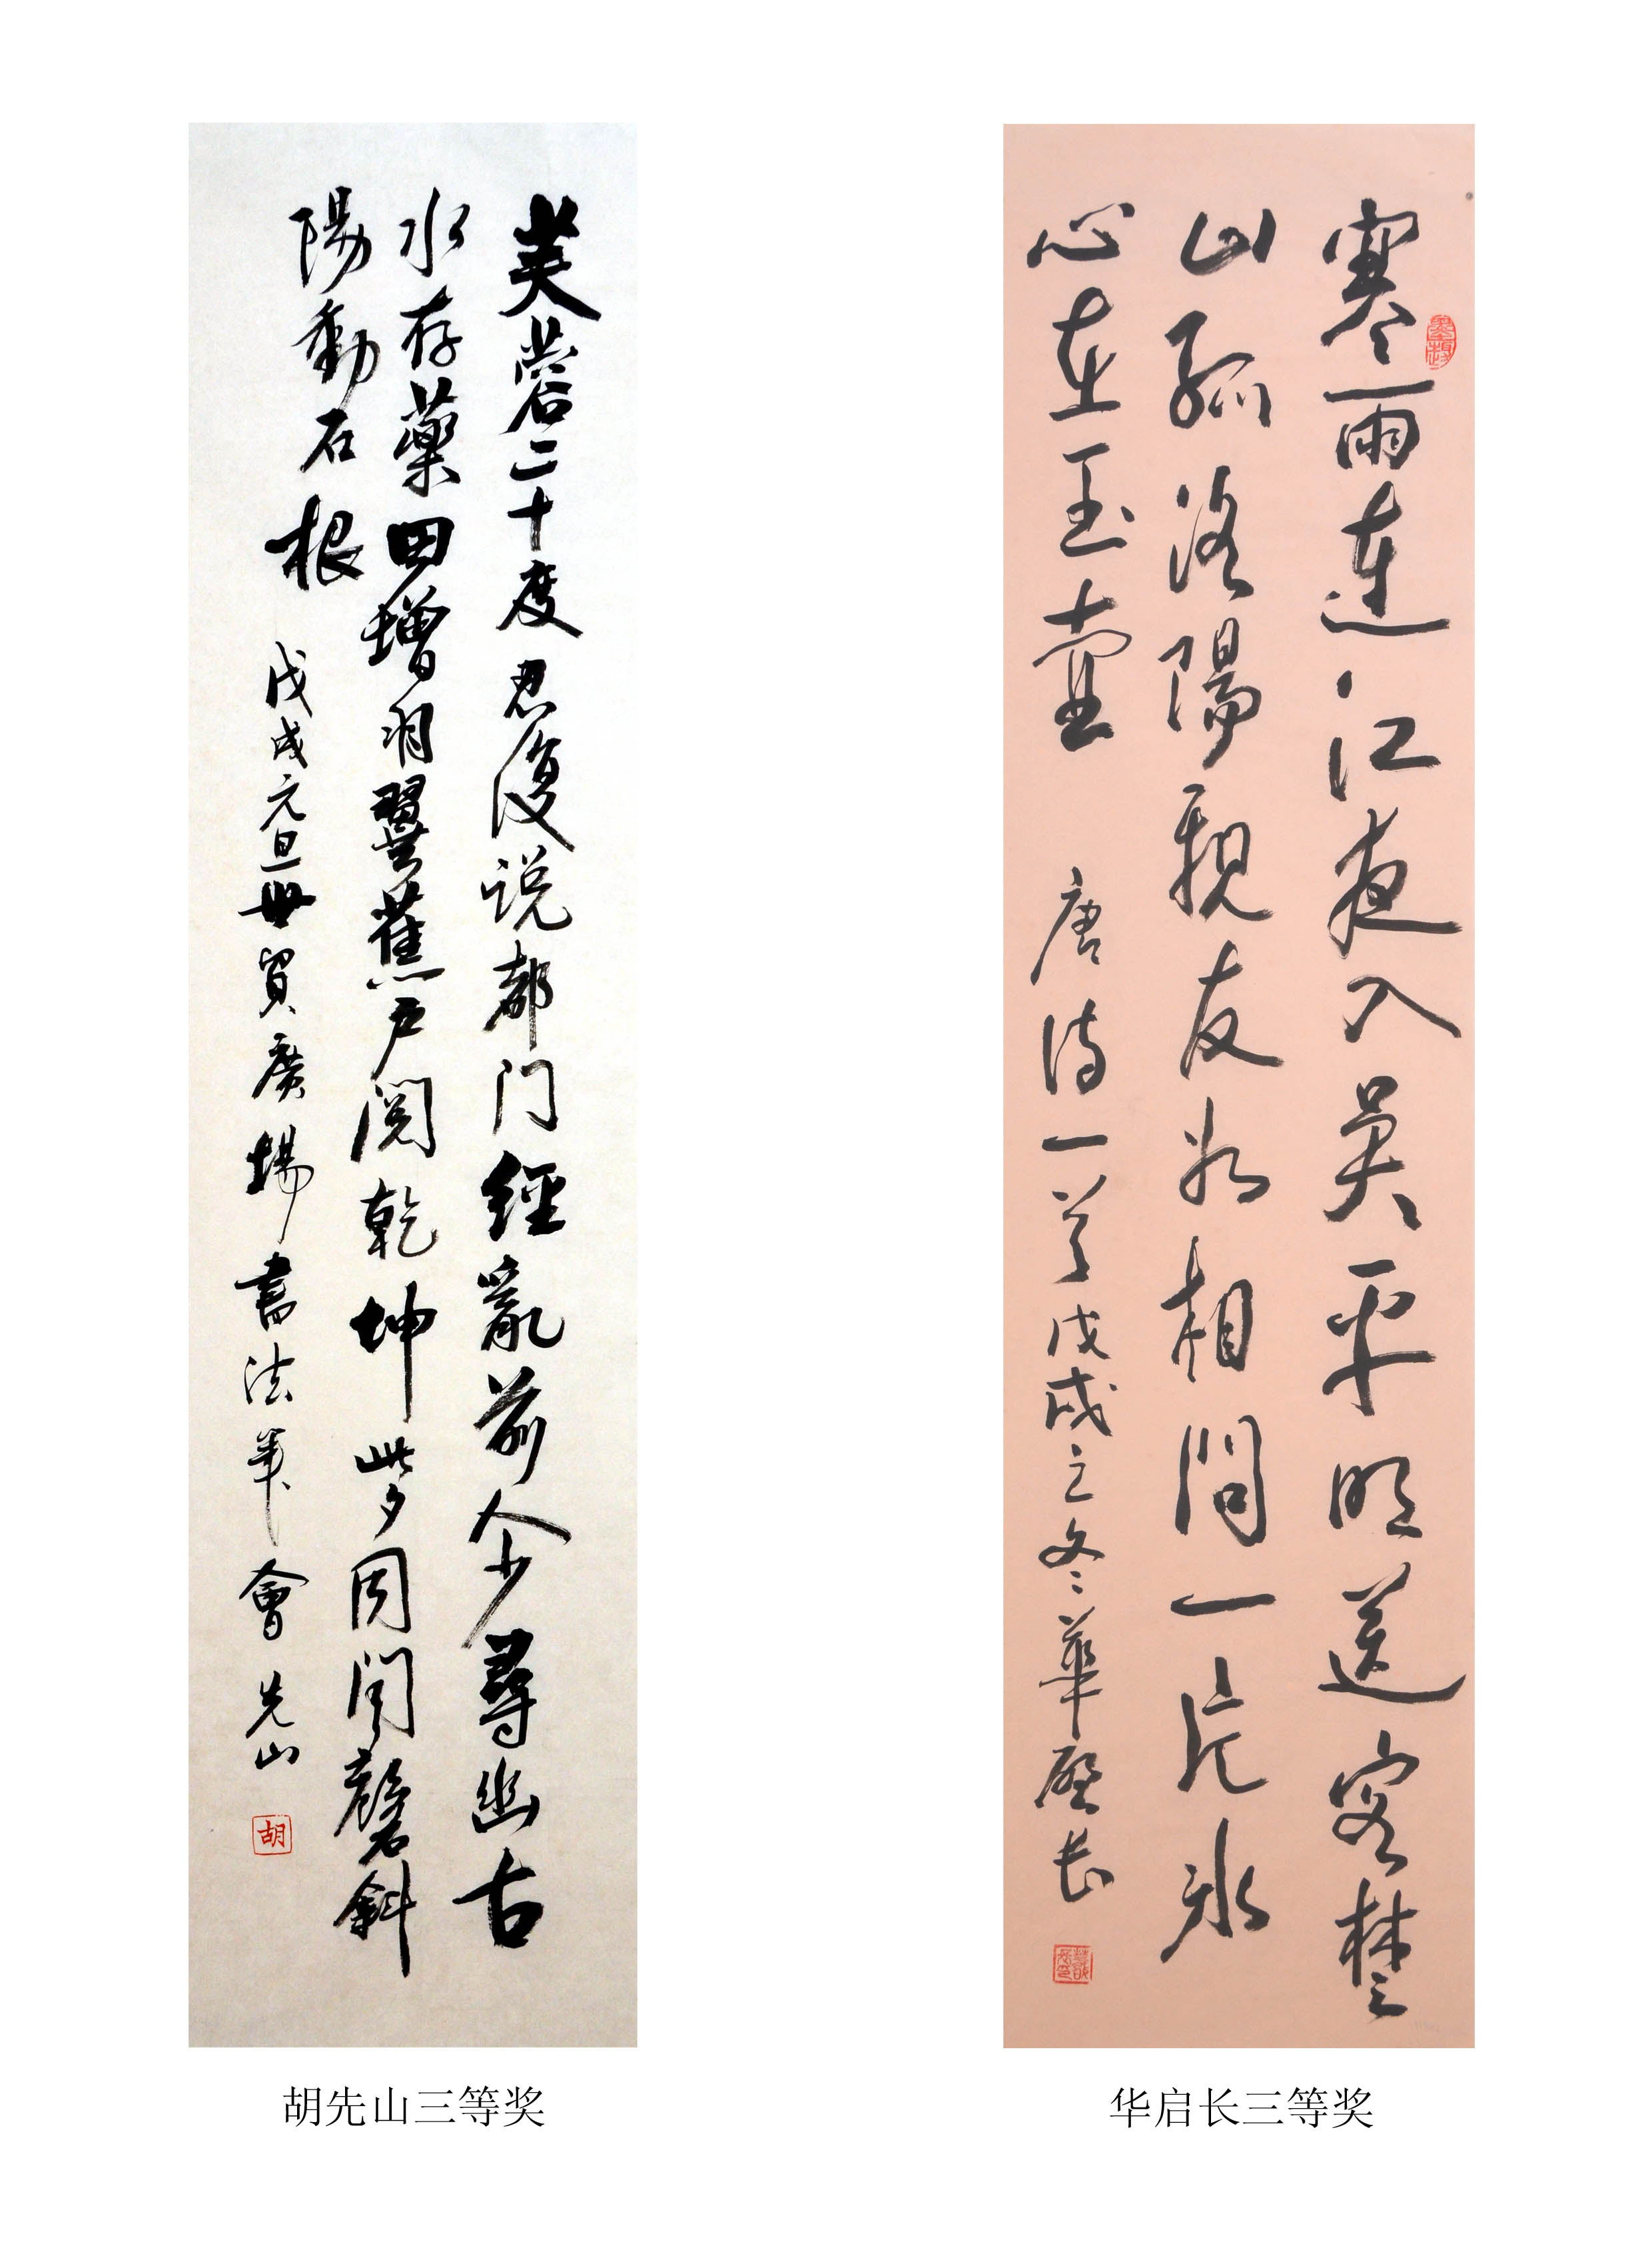 芙蓉二十度忍復说都门經亂前人少尋幽古
水存藥田增羽翼蕉户阅乾坤此夕因闻磬斜
陽動石根
戊戌元旦世貿廣場書法筆會 先山
胡
胡先山三等奖
寒雨連江夜入吴平明送客楚
山孤洛陽親友如相問一片冰
心在玉壺 唐诗一首戊戌立冬華啓長
华启长三等奖